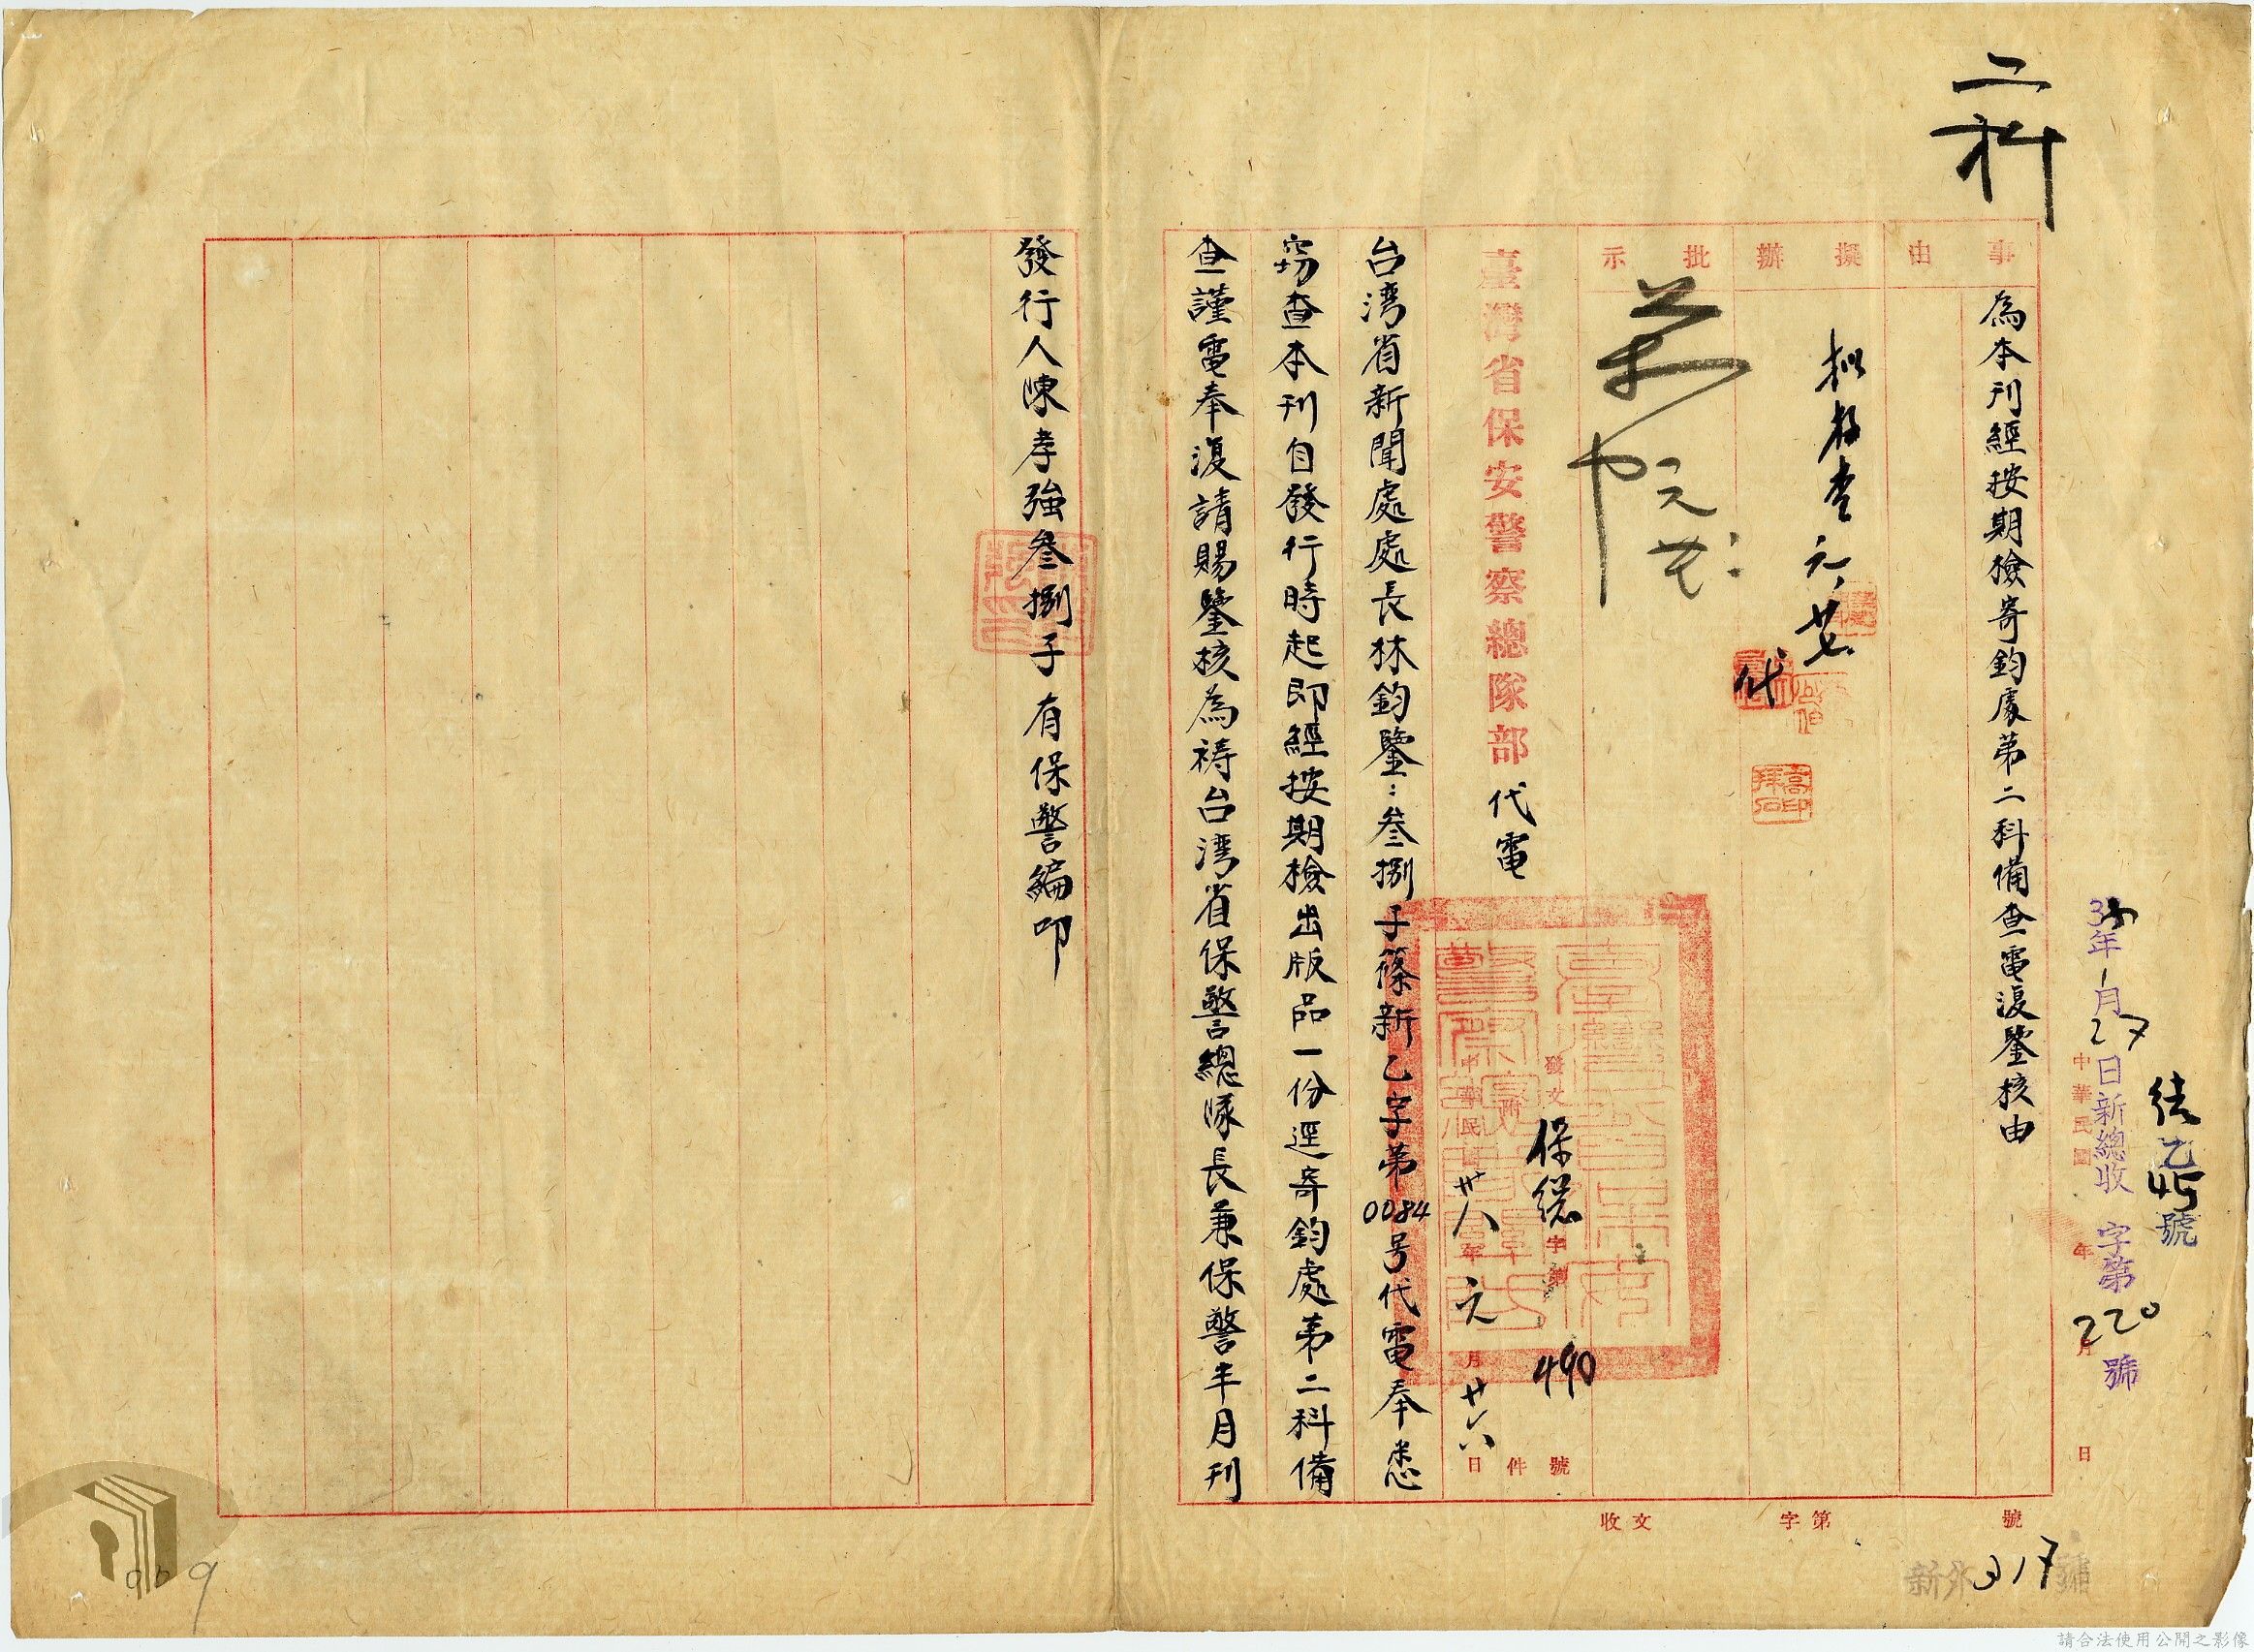 二科
事由
為本刊經按期檢寄鈞處第二科備查電復鑒核由
擬辦
元、廿七
代
批示
元廿七
臺灣省保安警察總隊部代電
發文
保總字第490號
附件
中華民國卅八年元月廿六日
台湾省新聞處處長林鈞鑒：叁捌子篠新乙字第0084号代電奉悉
竊查本刊自發行時起即經按期檢出版品一份逕寄鈞處第二科備
查謹電奉復請賜鑒核為祷台湾省保警總隊長兼保警半月刊
發行人陳孝強叁捌子宥保警編叩
年1月27日新總收字第220號
乙45號
中華民國 年 月 日
收文 字第 號
317
請合法使用公開之影像